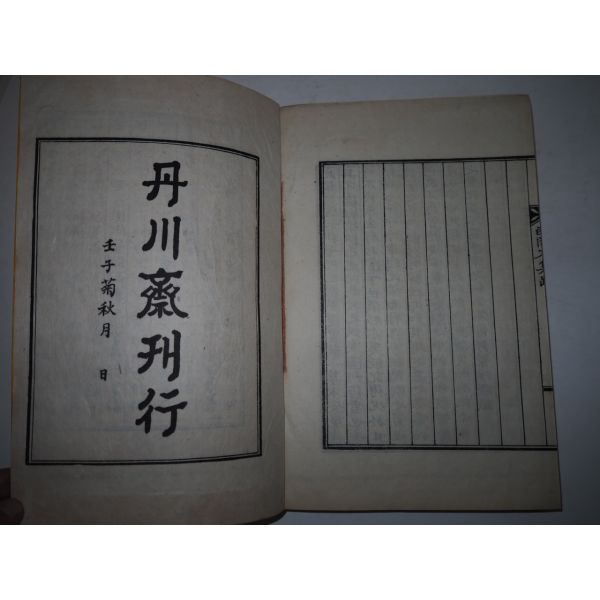 丹川齋刊行
壬子菊秋月 日